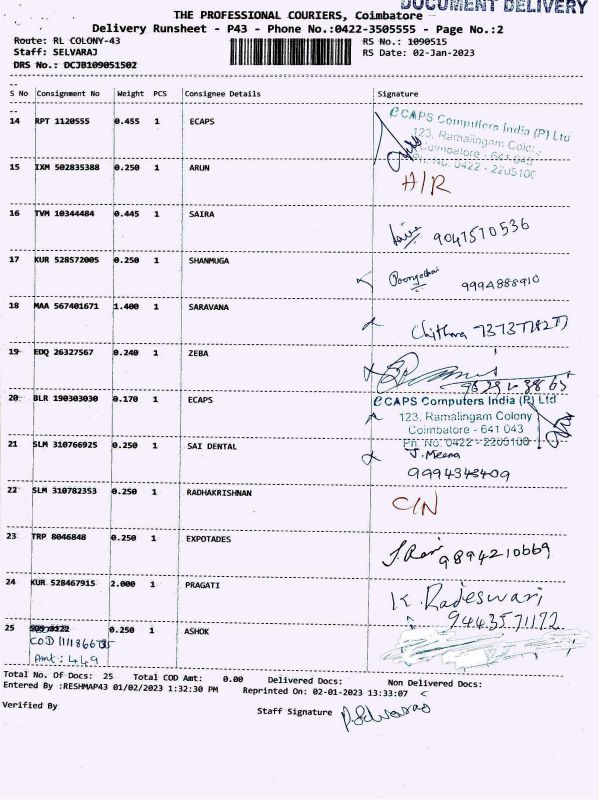 DOCUMENT DELIVERY
THE PROFESSIONAL COURIERS, Coimbatore
Delivery Runsheet - P43 - Phone No.:0422-3505555 - Page No.:2
Route: RL COLONY-43 RS No.: 1090515
Staff: SELVARAJ RS Date: 02-Jan-2023
DRS No.: DCJB109051502
S No Consignment No Weight PCS Consignee Details Signature
14 RPT 1120555 0.455 1 ECAPS
eCAPS Computers India (P) Ltd
123, Ramalingam Colony
Coimbatore - 641 043
Ph. No. 0422 - 2205100
15 IXM 502835388 0.250 1 ARUN A/R
16 TVM 10344484 0.445 1 SAIRA 9041510536
17 KUR 528572005 0.250 1 SHANMUGA Poongothai 9994888910
18 MAA 567401671 1.400 1 SARAVANA Chithra
19 EDQ 26327567 0.240 1 ZEBA
20 BLR 190303030 0.170 1 ECAPS
eCAPS Computers India (P) Ltd
123, Ramalingam Colony
Coimbatore - 641 043
Ph. No. 0422 - 2205100
21 SLM 310766925 0.250 1 SAI DENTAL J. Meena
9994343409
22 SLM 310782353 0.250 1 RADHAKRISHNAN C/N
23 TRP 8046848 0.250 1 EXPOTADES J. Ravi 9894210669
24 KUR 528467915 2.000 1 PRAGATI K. Radeswari
9443571172
25 0.250 1 ASHOK
COD
Amt: 449
Total No. Of Docs: 25 Total COD Amt: 0.00 Delivered Docs: Non Delivered Docs:
Entered By :RESHMAP43 01/02/2023 1:32:30 PM Reprinted On: 02-01-2023 13:33:07
Verified By Staff Signature P. Selvaraj